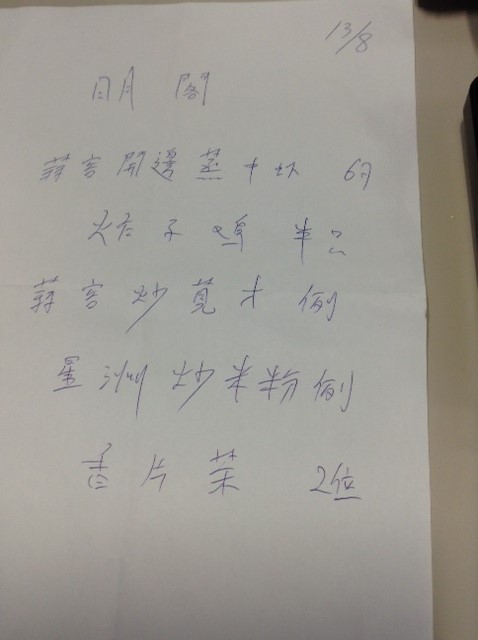 13/8
日月 閣
蒜容開邊蒸中虾 6
炸子鸡 半只
蒜容炒莧才 例
星洲炒米粉 例
香片茶 2位